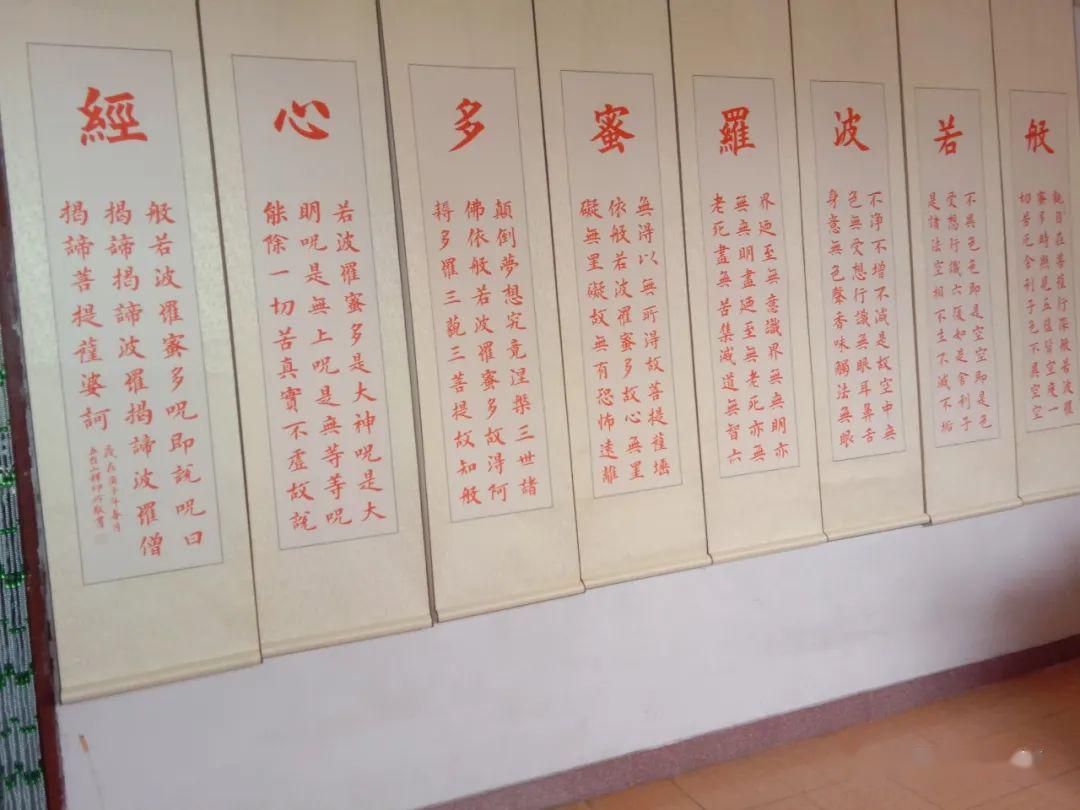 般
觀自在菩薩行深般若波羅
蜜多時照見五蘊皆空度一
切苦厄舍利子色不異空空
若
不異色色即是空空即是色
受想行識亦復如是舍利子
是諸法空相不生不滅不垢
波
不淨不增不減是故空中無
色無受想行識無眼耳鼻舌
身意無色聲香味觸法無眼
羅
界迺至無意識界無無明亦
無無明盡迺至無老死亦無
老死盡無苦集滅道無智亦
蜜
無得以無所得故菩提薩埵
依般若波羅蜜多故心無罣
礙無罣礙故無有恐怖遠離
多
顛倒夢想究竟涅槃三世諸
佛依般若波羅蜜多故得阿
耨多羅三藐三菩提故知般
心
若波羅蜜多是大神呪是大
明呪是無上呪是無等等呪
能除一切苦真實不虛故說
經
般若波羅蜜多呪即說呪曰
揭諦揭諦波羅揭諦波羅僧
揭諦菩提薩婆訶